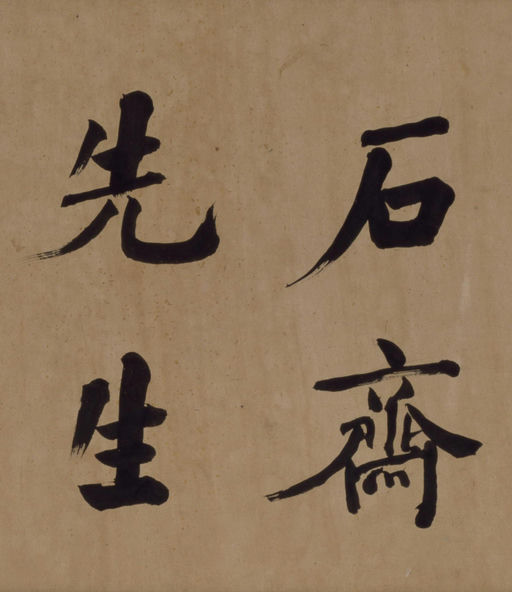 石齋
先生